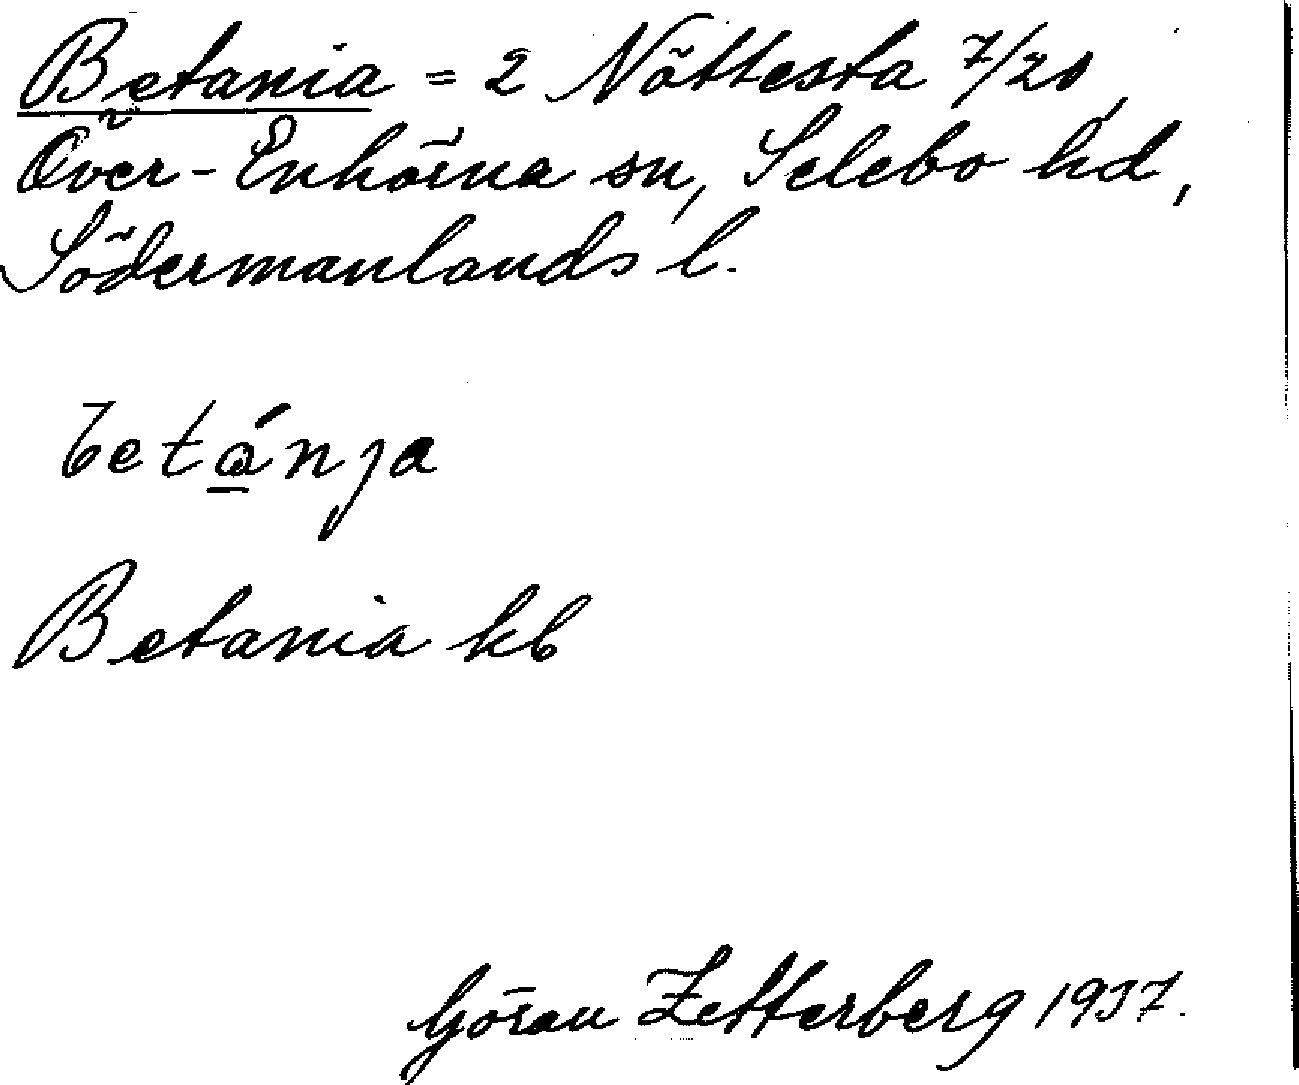 Betania = 2 Nöttesta 7/20,
Över-Enhörna sn, Selebo hd,
Södermanlands l.
betánja
Betania kb
Göran Zetterberg 1937.